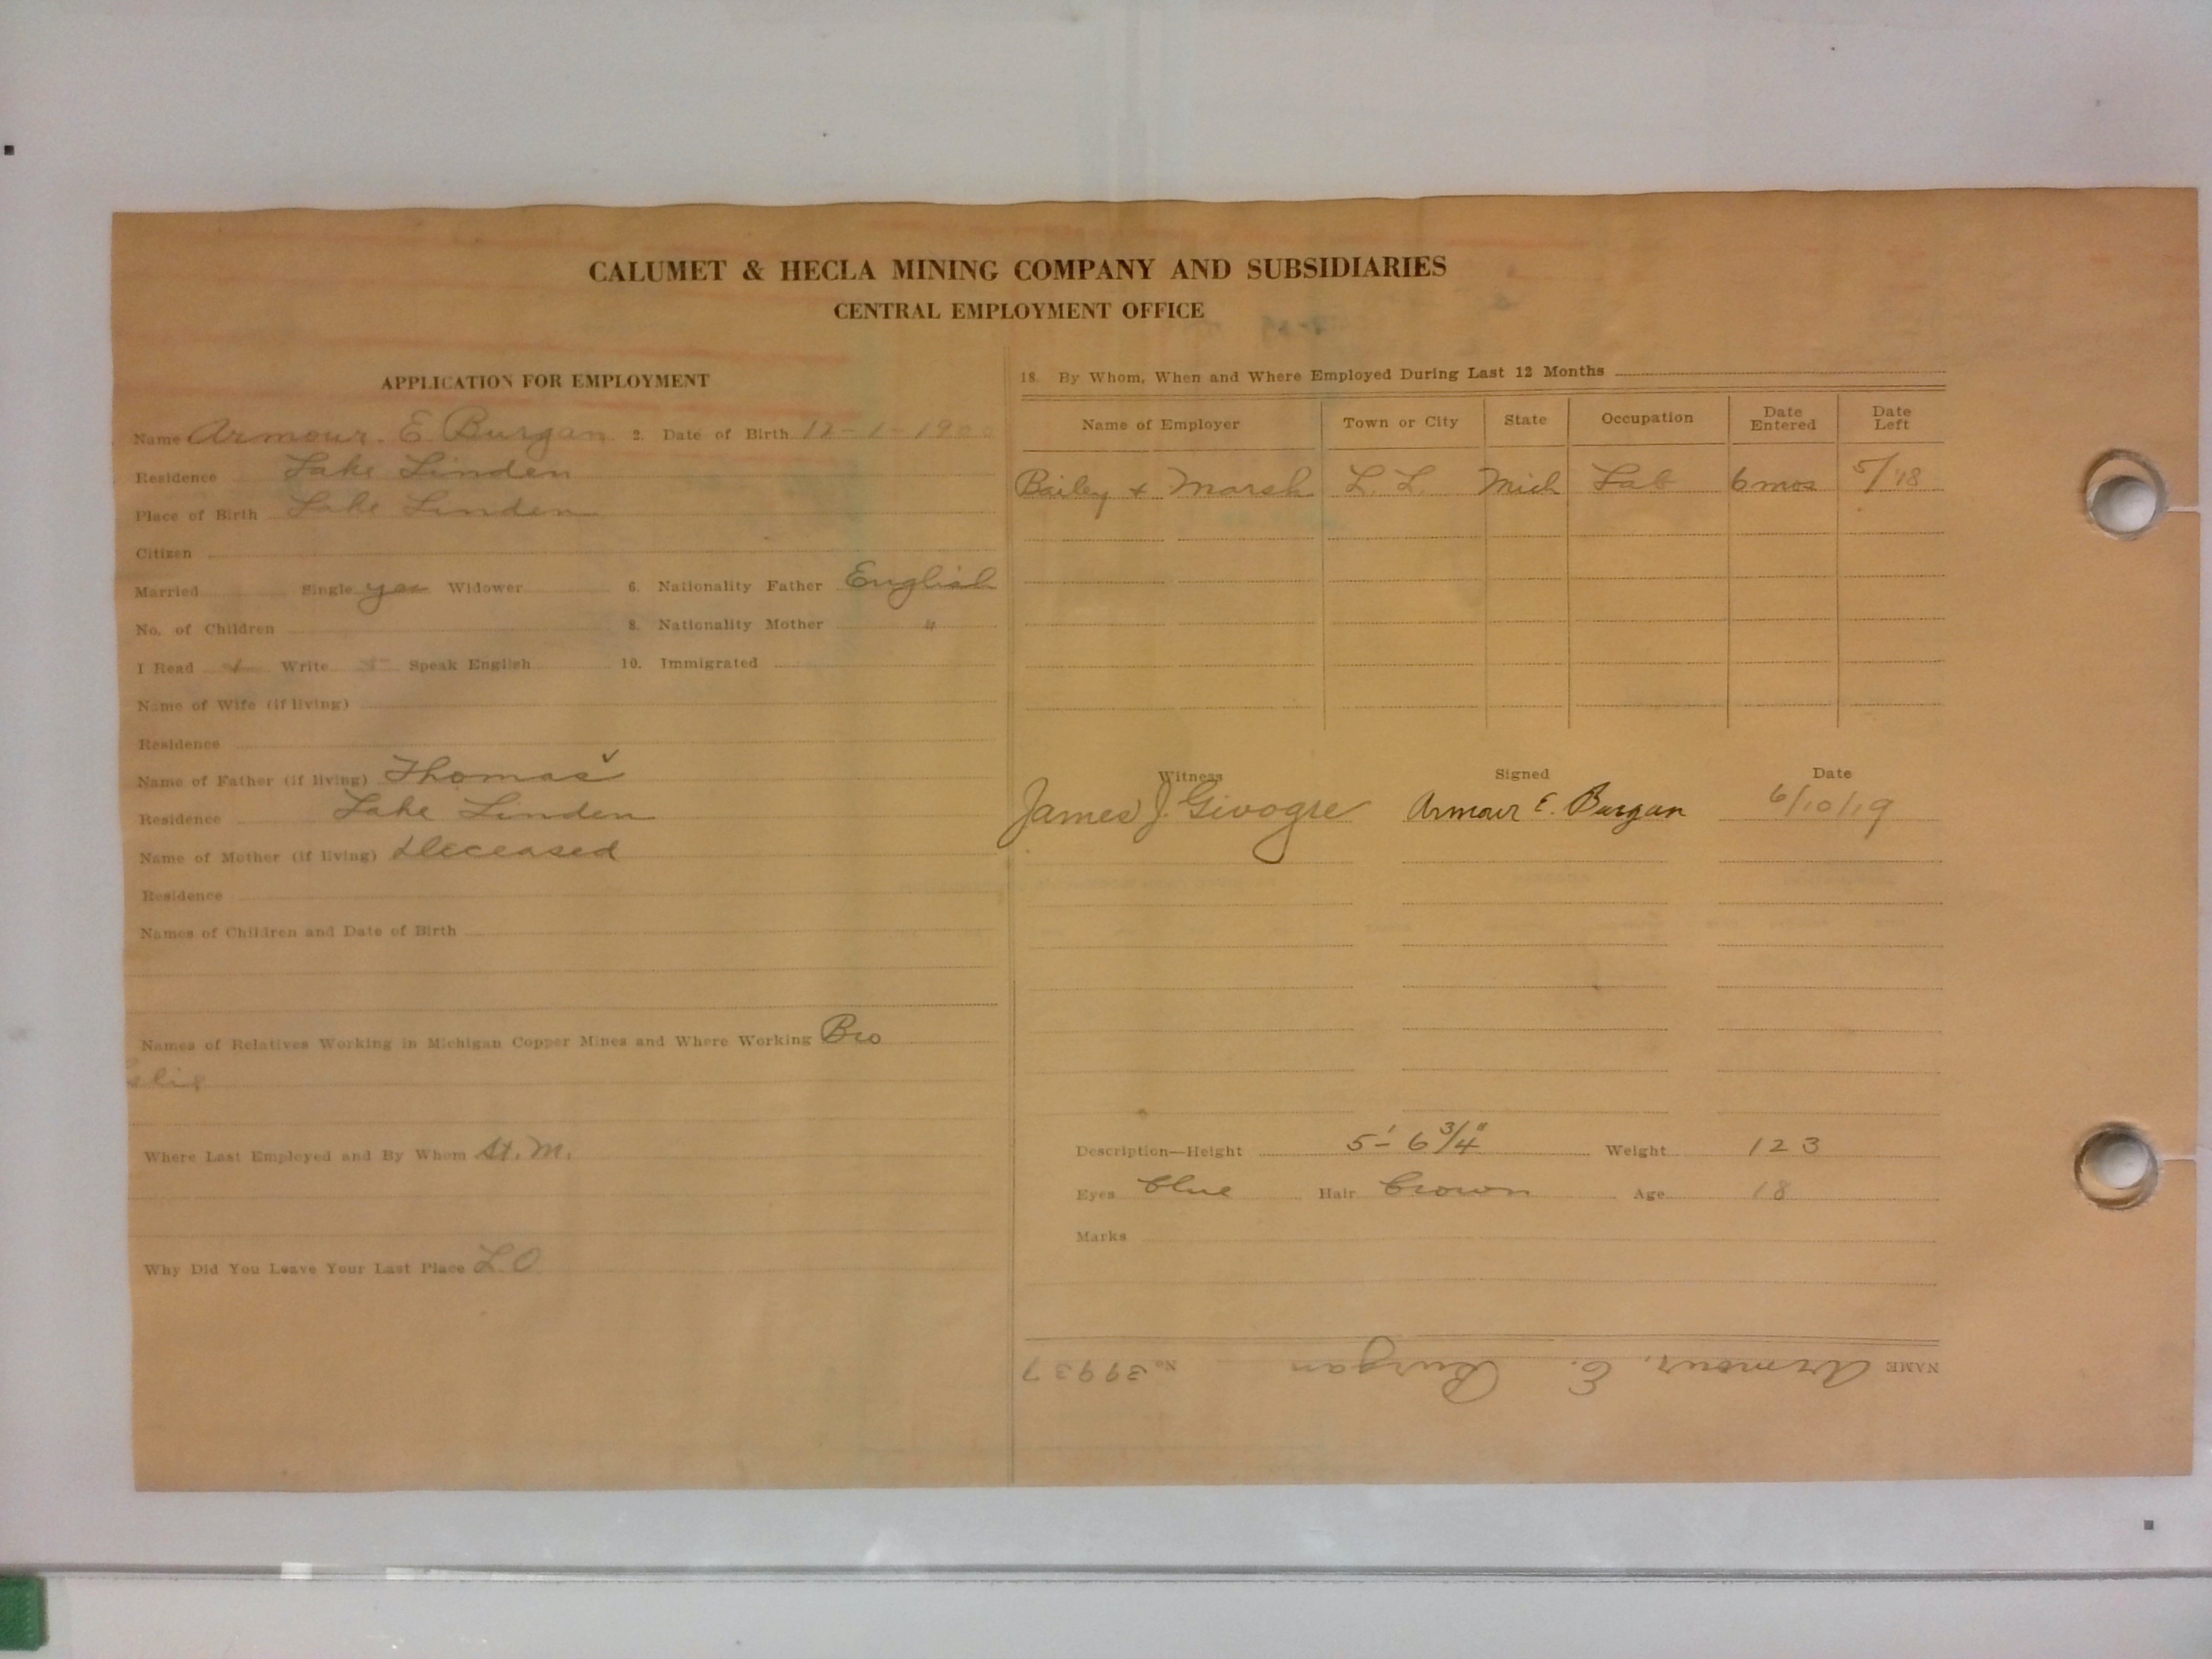 CALUMET & HECLA MINING COMPANY AND SUBSIDIARIES
CENTRAL EMPLOYMENT OFFICE
APPLICATION FOR EMPLOYMENT
Name Armour. E Burgan 2. Date of Birth 12-1-1900
Residence Lake Linden
Place of Birth Lake Linden
Citizen
Married Single yes Widower 6. Nationality Father English
No. of Children 8. Nationality Mother "
I Read Write Speak English 10. Immigrated
Name of Wife (if living)
Residence
Name of Father (if living) Thomas ✓
Residence Lake Linden
Name of Mother (if living) Deceased
Residence
Names of Children and Date of Birth
Names of Relatives Working in Michigan Copper Mines and Where Working Bro
eslie
Where Last Employed and By Whom St. M.
Why Did You Leave Your Last Place L.O
18. By Whom, When and Where Employed During Last 12 Months
Name of Employer Town or City State Occupation Date Entered Date Left
Bailey + Marsh L. L. Mich Lab 6 mos 5/18
Witness Signed Date
James J. Givogre Armour E. Burgan 6/10/19
Description—Height 5'- 6 3/4" Weight 123
Eyes blue Hair brown Age 18
Marks
NAME Armour, E. Burgan No 39937